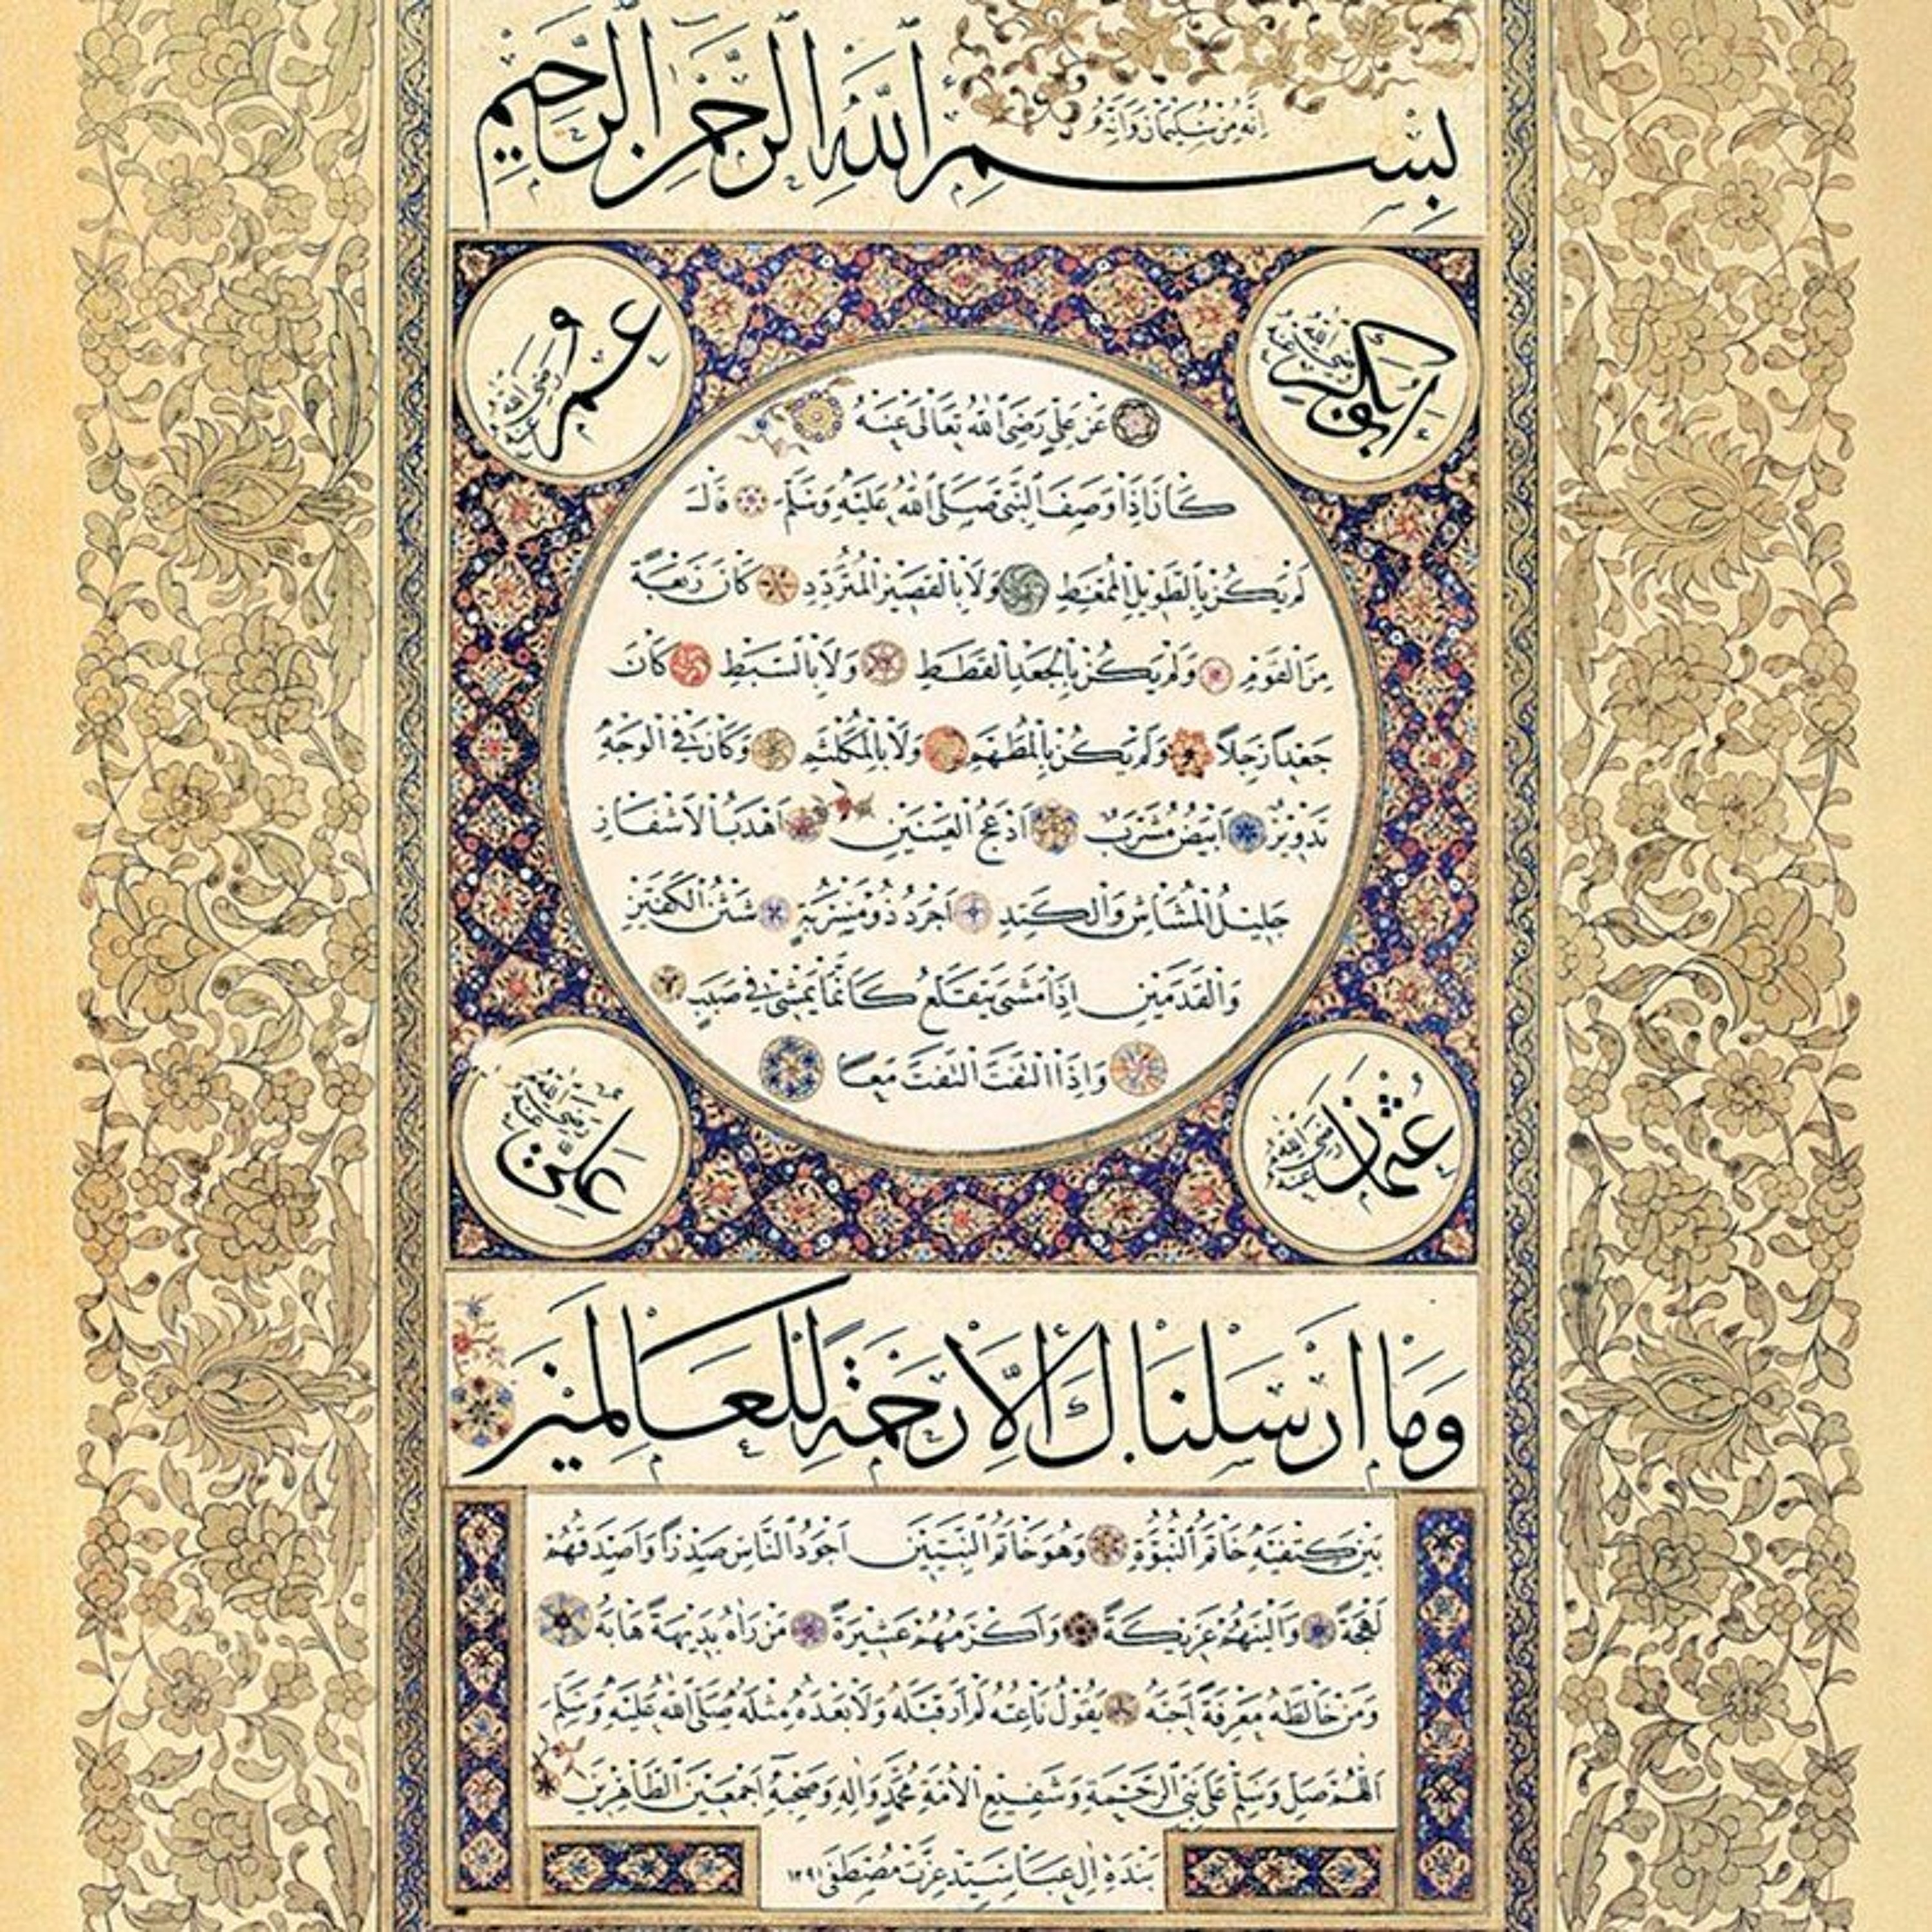 إنه من سليمان وإنه
بسم الله الرحمن الرحيم
أبو بكر رضي الله عنه
عمر رضي الله عنه
عن علي رضي الله تعالى عنه
كان إذا وصف النبي صلى الله عليه وسلم قال
لم يكن بالطويل الممغط ولا بالقصير المتردد كان ربعة
من القوم ولم يكن بالجعد القطط ولا بالسبط كان
جعدا رجلا ولم يكن بالمطهم ولا بالمكلثم وكان في الوجه
تدوير أبيض مشرب أدعج العينين أهدب الأشفار
جليل المشاش والكتد أجرد ذو مسربة شثن الكفين
والقدمين إذا مشى يتقلع كأنما يمشي في صبب
وإذا التفت التفت معا
عثمان رضي الله عنه
علي رضي الله عنه
وما أرسلناك إلا رحمة للعالمين
بين كتفيه خاتم النبوة وهو خاتم النبيين أجود الناس صدرا وأصدقهم
لهجة وألينهم عريكة وأكرمهم عشيرة من رآه بديهة هابه
ومن خالطه معرفة أحبه يقول ناعته لم أر قبله ولا بعده مثله صلى الله عليه وسلم
اللهم صل وسلم على نبي الرحمة وشفيع الأمة محمد وآله وصحبه أجمعين الطاهرين
بنده آل عبا سيد عزت مصطفى ١٢٩١